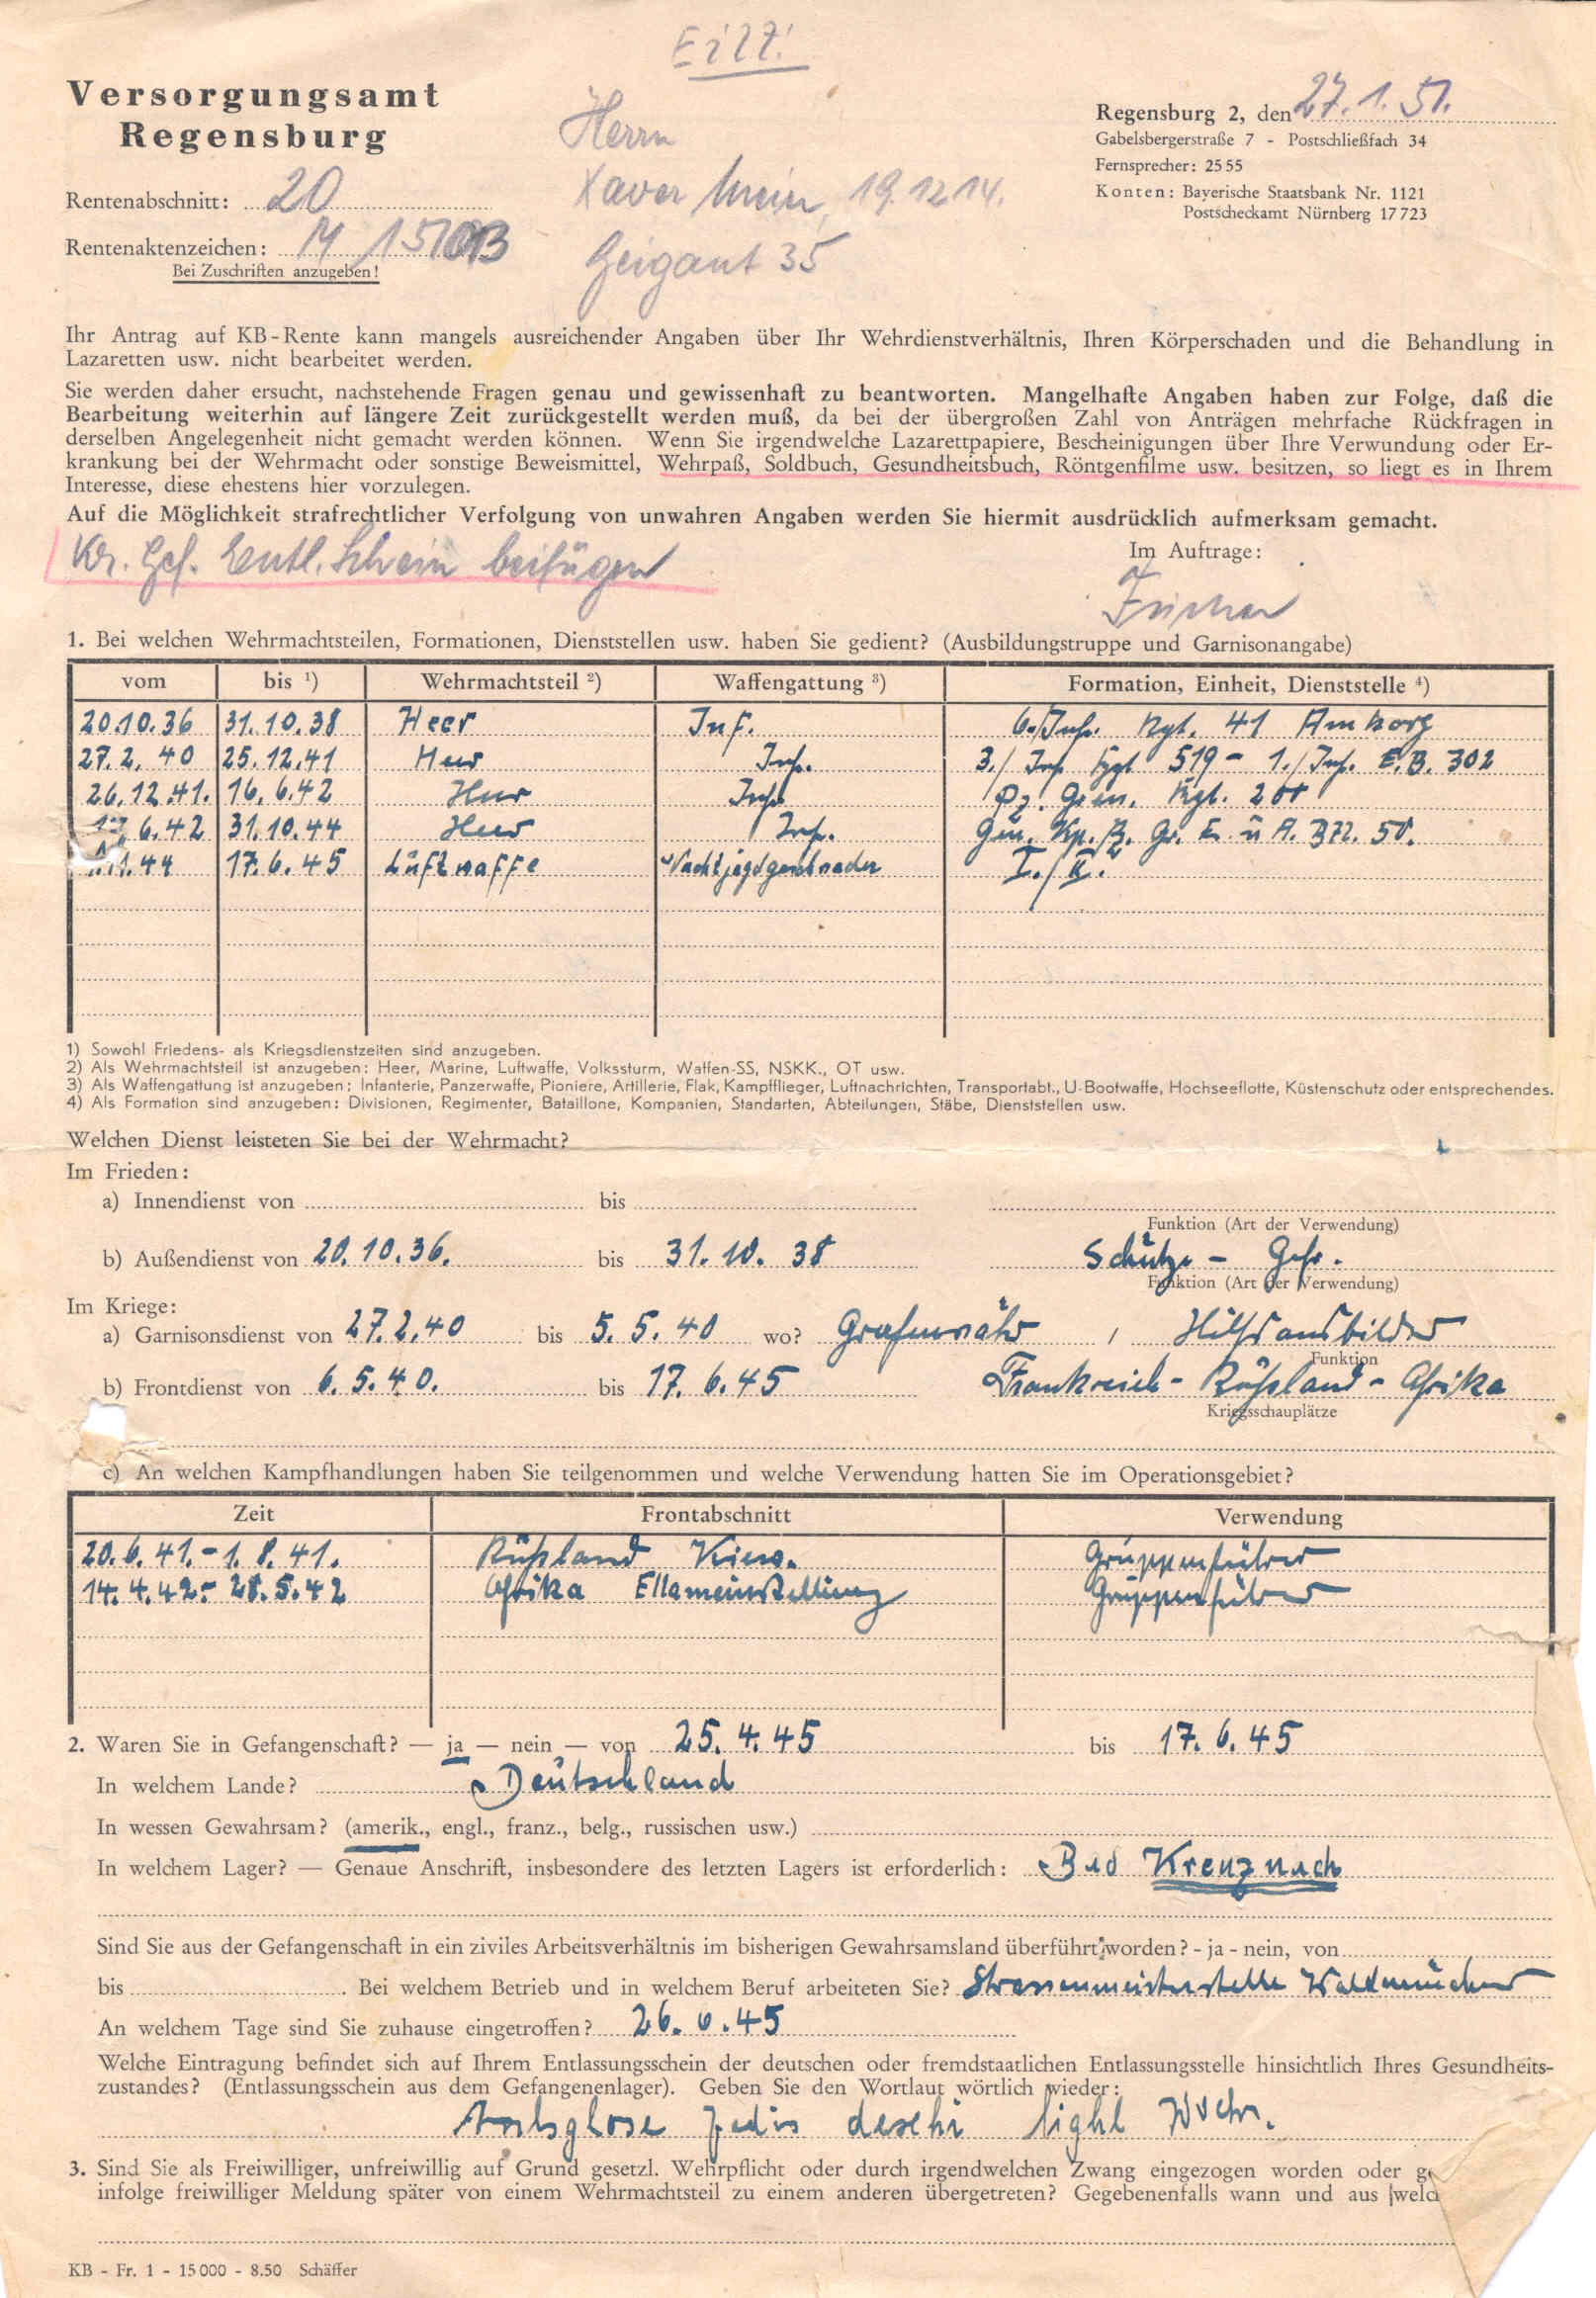 Eilt!
Versorgungsamt
Regensburg
Regensburg 2, den 27.1.51.
Gabelsbergerstraße 7 - Postschließfach 34
Fernsprecher: 25 55
Konten: Bayerische Staatsbank Nr. 1121
Postscheckamt Nürnberg 17 723
Herrn
Xaver 19.12.14.
Geigant 35
Rentenabschnitt: 20
Rentenaktenzeichen:
Bei Zuschriften anzugeben!
Ihr Antrag auf KB-Rente kann mangels ausreichender Angaben über Ihr Wehrdienstverhältnis, Ihren Körperschaden und die Behandlung in
Lazaretten usw. nicht bearbeitet werden.
Sie werden daher ersucht, nachstehende Fragen genau und gewissenhaft zu beantworten. Mangelhafte Angaben haben zur Folge, daß die
Bearbeitung weiterhin auf längere Zeit zurückgestellt werden muß, da bei der übergroßen Zahl von Anträgen mehrfache Rückfragen in
derselben Angelegenheit nicht gemacht werden können. Wenn Sie irgendwelche Lazarettpapiere, Bescheinigungen über Ihre Verwundung oder Er-
krankung bei der Wehrmacht oder sonstige Beweismittel, Wehrpaß, Soldbuch, Gesundheitsbuch, Röntgenfilme usw. besitzen, so liegt es in Ihrem
Interesse, diese ehestens hier vorzulegen.
Auf die Möglichkeit strafrechtlicher Verfolgung von unwahren Angaben werden Sie hiermit ausdrücklich aufmerksam gemacht.
Kr. Gef. Entl. Schein beifügen
Im Auftrage:
1. Bei welchen Wehrmachtsteilen, Formationen, Dienststellen usw. haben Sie gedient? (Ausbildungstruppe und Garnisonangabe)
vom bis ¹) Wehrmachtsteil ²) Waffengattung ³) Formation, Einheit, Dienststelle ⁴)
20.10.36 31.10.38 Heer Inf. 6./Inf. Rgt. 41 Amberg
27.2.40 25.12.41 Heer Inf. 3./ Inf. Rgt 519 - 1./Inf. E.B. 302
26.12.41. 16.6.42 Heer Inf. Pz. Gren. Rgt. 200
6.42 31.10.44 Heer Inf. Gen. Kp. Pz. Gr. E. u A. Btl. 50.
44 17.6.45 Luftwaffe Nachtjagdgeschwader
1) Sowohl Friedens- als Kriegsdienstzeiten sind anzugeben.
2) Als Wehrmachtsteil ist anzugeben: Heer, Marine, Luftwaffe, Volkssturm, Waffen-SS, NSKK., OT usw.
3) Als Waffengattung ist anzugeben: Infanterie, Panzerwaffe, Pioniere, Artillerie, Flak, Kampfflieger, Luftnachrichten, Transportabt., U-Bootwaffe, Hochseeflotte, Küstenschutz oder entsprechendes.
4) Als Formation sind anzugeben: Divisionen, Regimenter, Bataillone, Kompanien, Standarten, Abteilungen, Stäbe, Dienststellen usw.
Welchen Dienst leisteten Sie bei der Wehrmacht?
Im Frieden:
a) Innendienst von bis
Funktion (Art der Verwendung)
b) Außendienst von 20.10.36. bis 31.10.38 Schütze - Gefr.
Funktion (Art der Verwendung)
Im Kriege:
a) Garnisonsdienst von 27.2.40 bis 5.5.40 wo? Grafenwöhr / Hilfsausbilder
Funktion
b) Frontdienst von 6.5.40. bis 17.6.45 Frankreich - Rußland - Afrika
Kriegsschauplätze
c) An welchen Kampfhandlungen haben Sie teilgenommen und welche Verwendung hatten Sie im Operationsgebiet?
Zeit Frontabschnitt Verwendung
20.6.41. - 1.8.41. Rußland Kiew. Gruppenführer
14.4.42 - 28.5.42 Afrika Ellameinstellung Gruppenführer
2. Waren Sie in Gefangenschaft? — ja — nein — von 25.4.45 bis 17.6.45
In welchem Lande? Deutschland
In wessen Gewahrsam? (amerik., engl., franz., belg., russischen usw.)
In welchem Lager? — Genaue Anschrift, insbesondere des letzten Lagers ist erforderlich: Bad Kreuznach
Sind Sie aus der Gefangenschaft in ein ziviles Arbeitsverhältnis im bisherigen Gewahrsamsland überführt worden? - ja - nein, von
bis . Bei welchem Betrieb und in welchem Beruf arbeiteten Sie? Strassenmeisterstelle Waldmünchen
An welchem Tage sind Sie zuhause eingetroffen? 26.6.45
Welche Eintragung befindet sich auf Ihrem Entlassungsschein der deutschen oder fremdstaatlichen Entlassungsstelle hinsichtlich Ihres Gesundheits-
zustandes? (Entlassungsschein aus dem Gefangenenlager). Geben Sie den Wortlaut wörtlich wieder:
light
3. Sind Sie als Freiwilliger, unfreiwillig auf Grund gesetzl. Wehrpflicht oder durch irgendwelchen Zwang eingezogen worden oder
infolge freiwilliger Meldung später von einem Wehrmachtsteil zu einem anderen übergetreten? Gegebenenfalls wann und aus
KB - Fr. 1 - 15 000 - 8.50 Schäffer